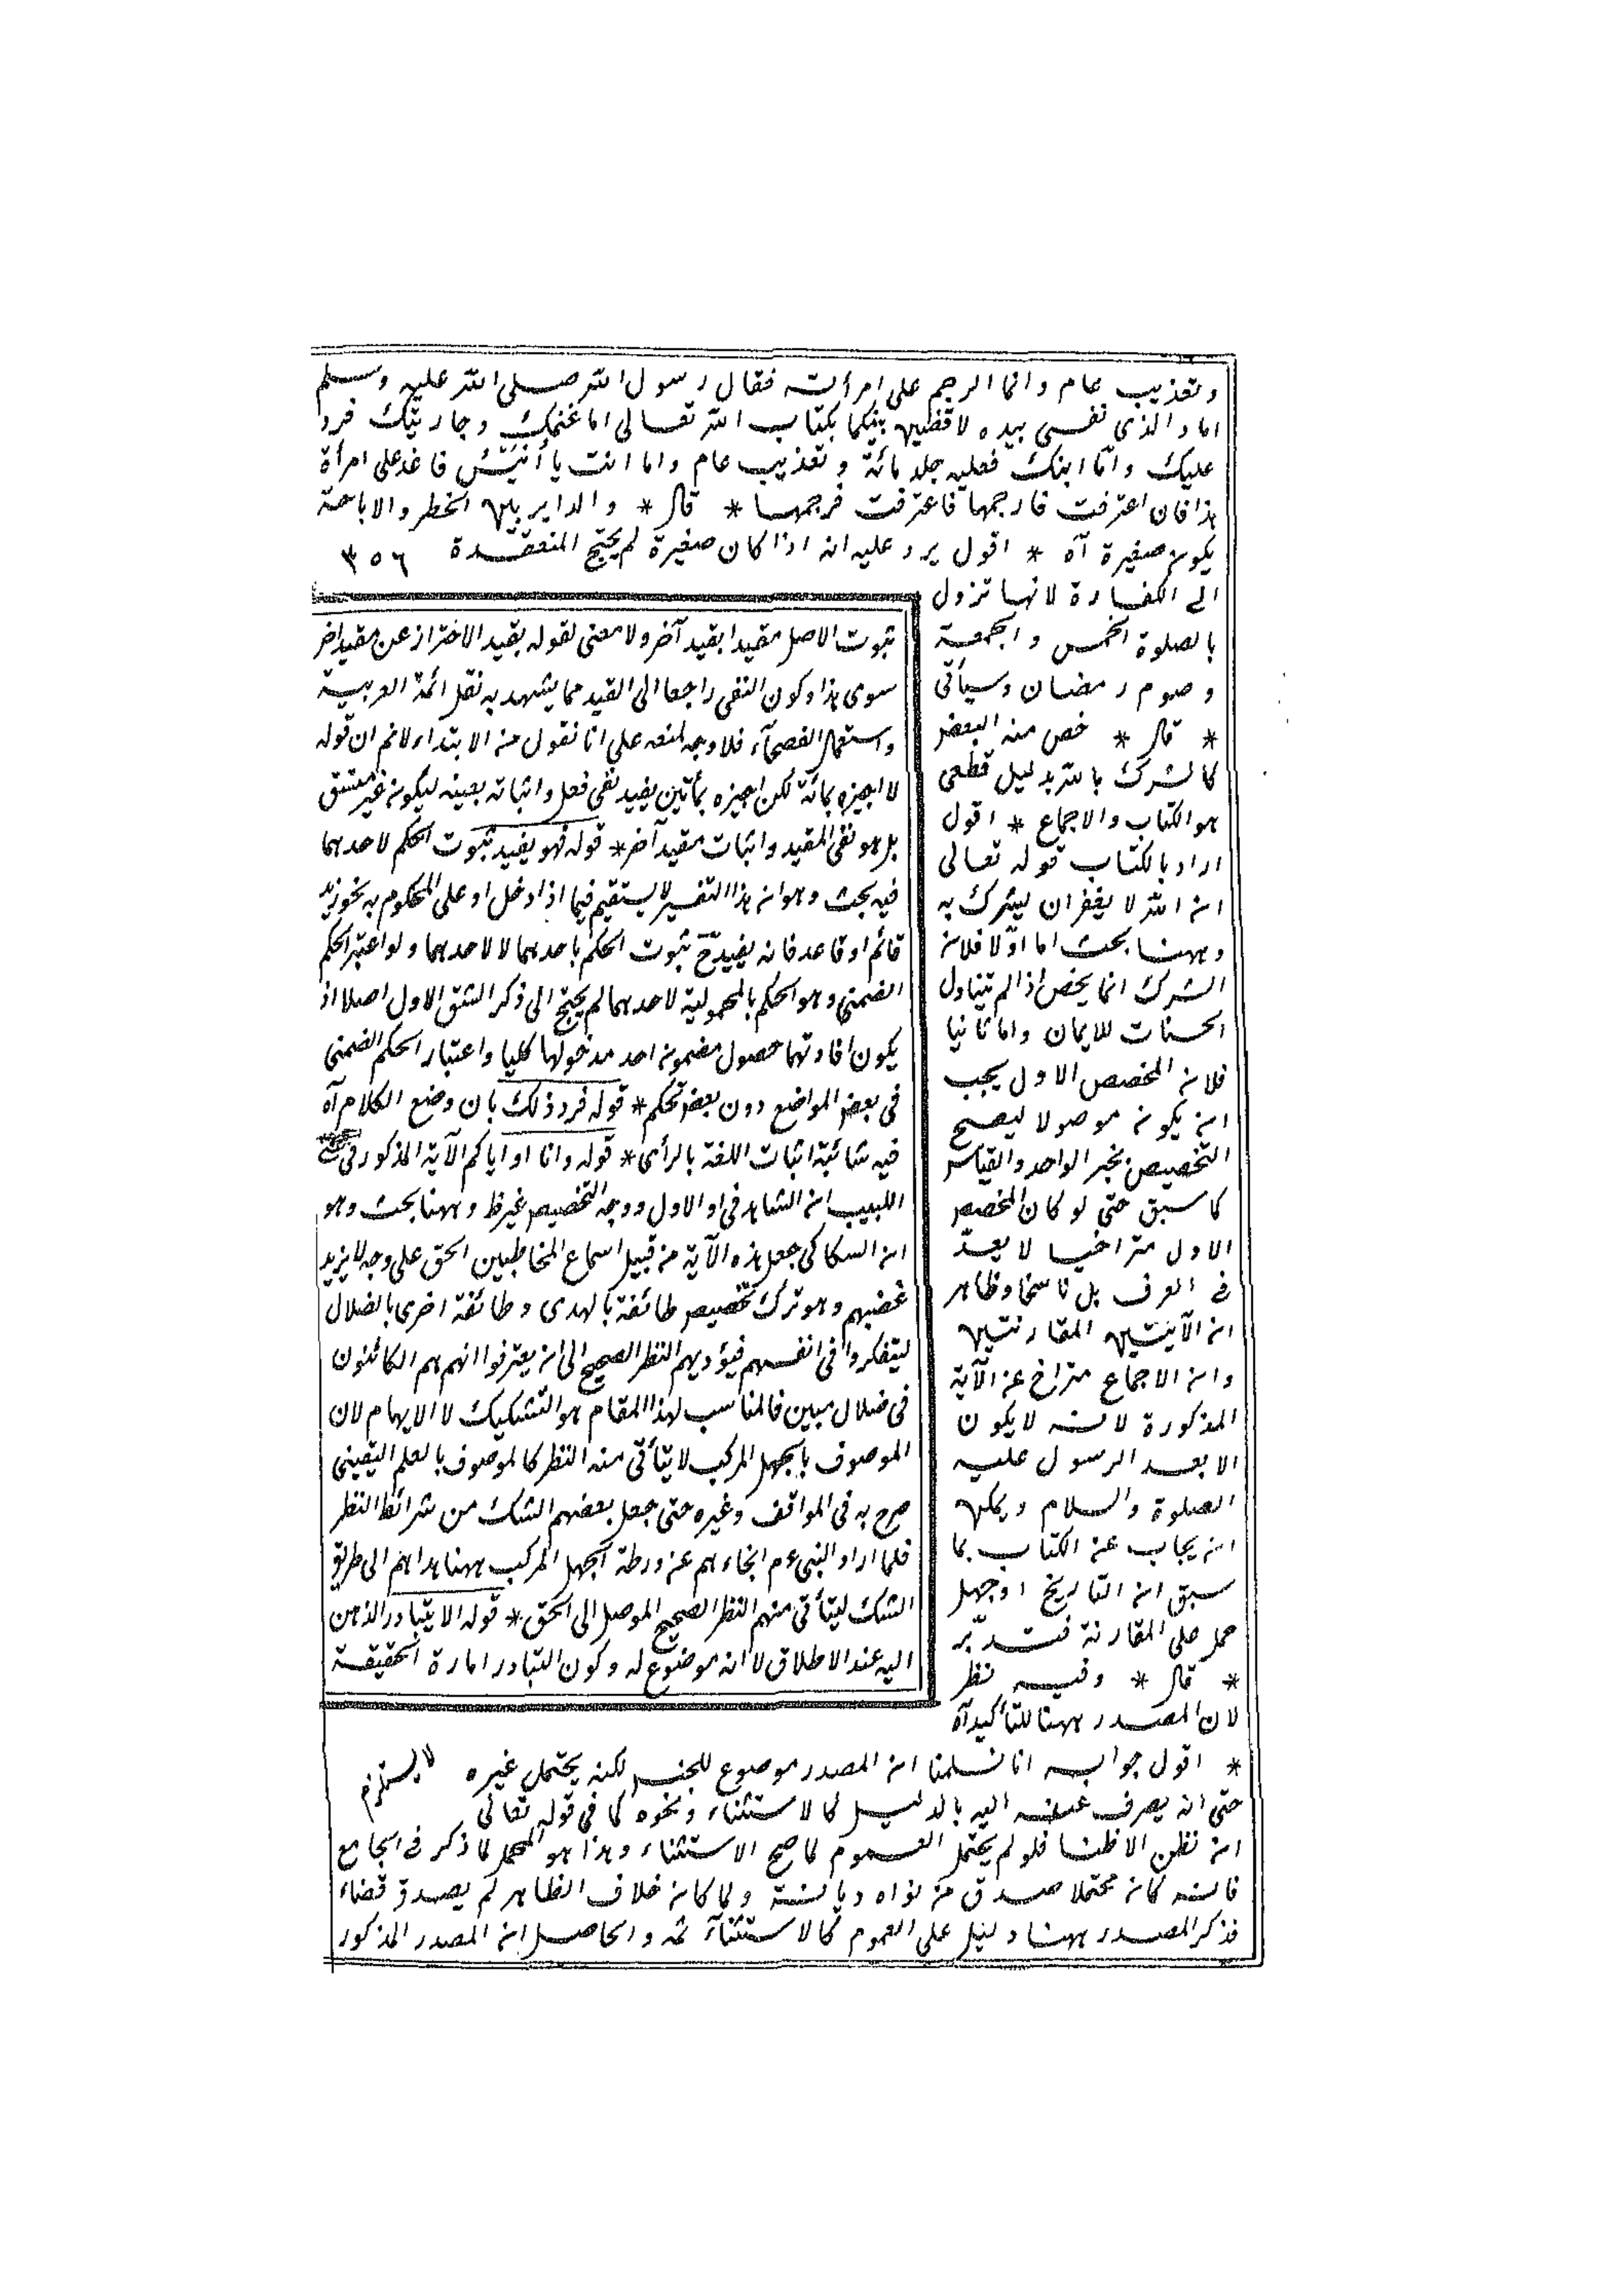 وتعذيب عام وانما الرجم على امرأته فقال رسول الله صلى الله عليه وسلم
اما والذى نفسى بيده لاقضين بينكما بكتاب الله تعالى اما غنمك وجاريتك فرد
عليك واما ابنك فعليه جلد مائة وتعذيب عام واما انت يا أنيس فاغد على امرأة
هذا فان اعترفت فارجمها فاعترفت فرجمها * قال * والداير بين الخطر والاباحة
يكون صغيرة آه * اقول يرد عليه انه اذا كان صغيرة لم يحتج المنعقدة ٣٥٦
الى الكفارة لانها تزول
بالصلوة الخمس والجمعة
وصوم رمضان وسيأتى
* قال * خص منه البعض
كالشرك بالله بدليل قطعى
هو الكتاب والاجماع * اقول
اراد بالكتاب قوله تعالى
ان الله لا يغفر ان يشرك به
وههنا بحث اما اولا فلان
الشرك انما يخص اذا لم يتناول
الحسنات للايمان واما ثانيا
فلان المخصص الاول يجب
ان يكون موصولا ليصح
التخصيص بخبر الواحد والقياس
كما سبق حتى لو كان المخصص
الاول متراخيا لا يعد
فى العرف بل ناسخا وظاهر
ان الآيتين المقارنتين
وان الاجماع متراخ عن الآية
المذكورة لانه لا يكون
الا بعد الرسول عليه
الصلوة والسلام ويمكن
ان يجاب عن الكتاب بما
سبق ان التاريخ اذا جهل
حمل على المقارنة فتدبر
* قال * وفيه نظر
لان المصدر ههنا للتأكيد آه
* اقول جوابه انا نسلمنا ان المصدر موضوع للجنس لكنه يحتمل غيره لا يستلزم
حتى انه يصرف عنه اليه بالدليل كالاستثناء ونحوه كما فى قوله تعالى
ان نظن الا ظنا فلو لم يحتمل العموم لما صح الاستثناء وهذا هو المحمل لما ذكر فى الجامع
فانه كان محتملا صدق من نواه ديانة ولما كان خلاف الظاهر لم يصدق قضاء
فذكر المصدر ههنا دليل على العموم كالاستثناء ثمه والحاصل ان المصدر المذكور
ثبوت الاصل مقيدا بقيد آخر ولا معنى لقوله بقيد الاحتراز عن مقيد آخر
سوى هذا وكون النفى راجعا الى القيد مما يشهد به نقل ائمة العربية
واستعمال الفصحآء فلا وجه لمنعه على انا نقول من الابتداء لا نم ان قوله
لا اجيزه بمائة لكن اجيزه بمأتين يفيد نفى فعل واثباته بعينه ليكون غير متسق
بل هو نفى المقيد واثبات مقيد آخر * قوله فهو يفيد ثبوت الحكم لاحدهما
فيه بحث وهو ان هذا التفسير لا يستقيم فيما اذا دخل او على المحكوم به نحو زيد
قائم او قاعد فانه يفيد ح ثبوت الحكم باحدهما لا لاحدهما ولو اعتبر الحكم
الضمنى وهو الحكم بالمحمولية لاحدهما لم يحتج الى ذكر الشق الاول اصلا اذ
يكون افادتهما حصول مضمون احد مدخولها كليا واعتبار الحكم الضمنى
فى بعض المواضع دون بعض تحكم * قوله فرد ذلك بان وضع الكلام آه
فيه شائبة اثبات اللغة بالرأى * قوله وانا او اياكم الآية المذكور فى
اللبيب ان الشاهد فى او الاول ووجه التخصيص غير ظ وههنا بحث وهو
ان السكاكى جعل هذه الآية من قبيل اسماع المخاطبين الحق على وجه لا يزيد
غضبهم وهو ترك تخصيص طائفة بالهدى وطائفة اخرى بالضلال
ليتفكروا فى انفسهم فيؤديهم النظر الصحيح الى ان يعترفوا انهم هم الكائنون
فى ضلال مبين فالمناسب لهذا المقام هو التشكيك لا الايهام لان
الموصوف بالجهل المركب لا يتأتى منه النظر كالموصوف بالعلم اليقينى
صرح به فى المواقف وغيره حتى جعل بعضهم الشك من شرائط النظر
فلما اراد النبى ع م انجاءهم عن ورطة الجهل المركب ههنا هداهم الى طريق
الشك ليتأتى منهم النظر الصحيح الموصل الى الحق * قوله الا يتبادر الذهن
اليه عند الاطلاق لا انه موضوع له وكون التبادر امارة الحقيقة